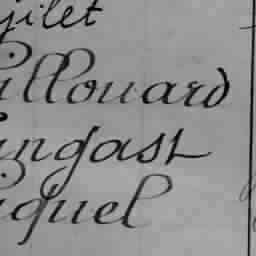 jilet
illouard
ingast
iquel